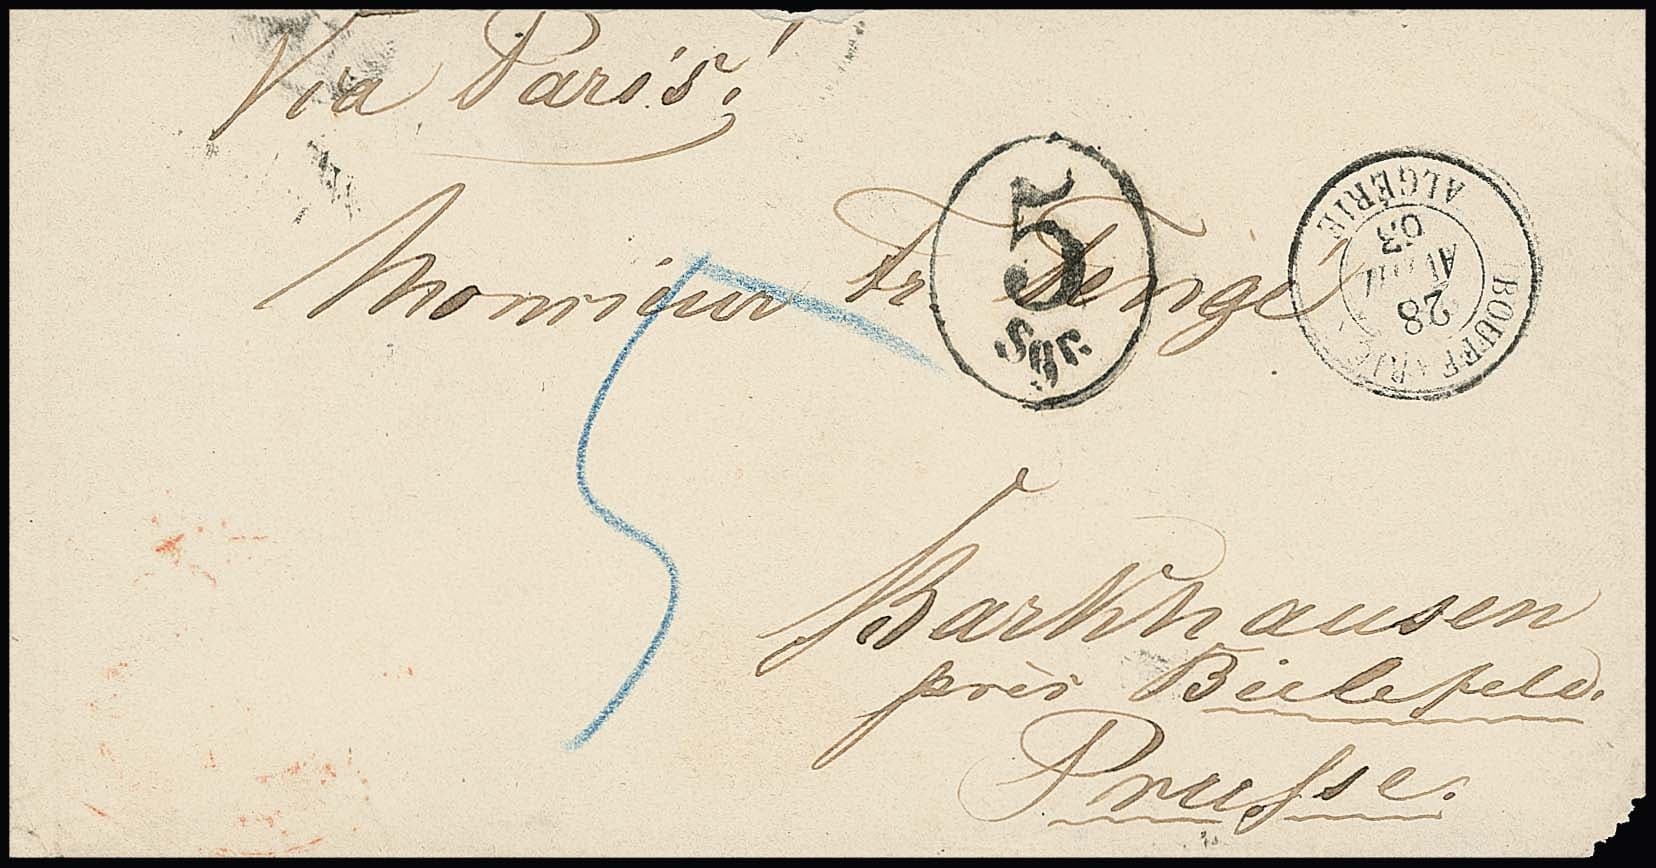 Via Paris!
Monsieur Fr. Tenge
5
Sgr.
BOUFFARIK
28
AVRIL
63
ALGÉRIE
5
Barkhausen
près Bielefeld.
Prusse.